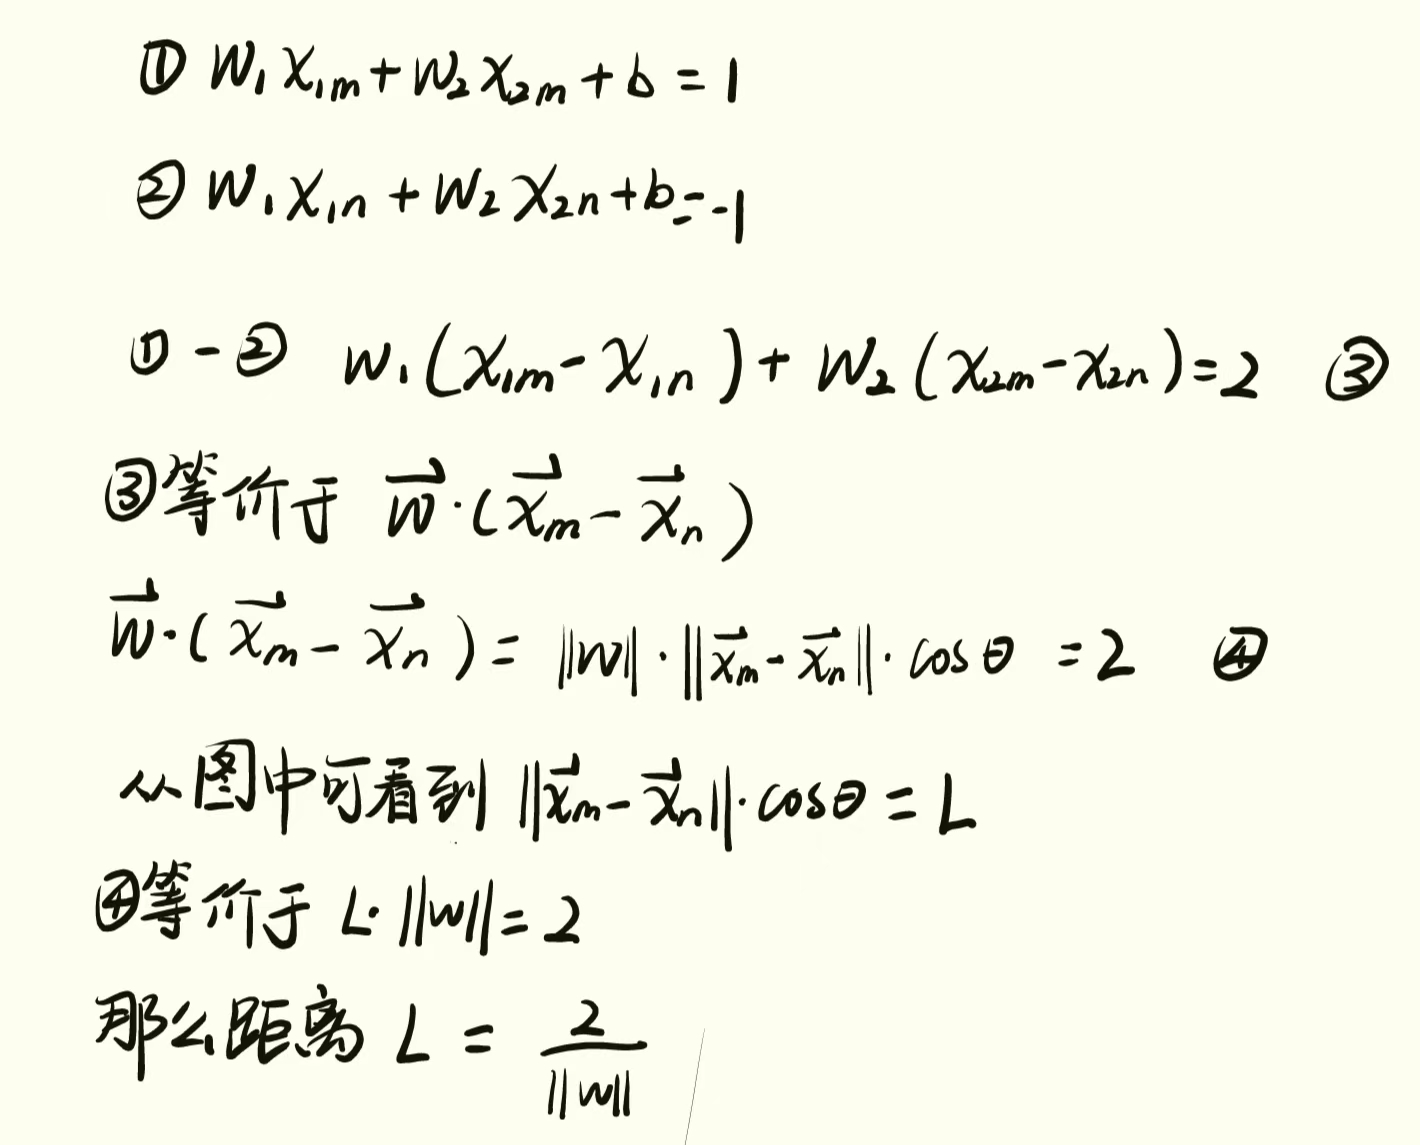 ① W₁X₁ₘ+W₂X₂ₘ+b=1
② W₁X₁ₙ+W₂X₂ₙ+b=-1
①-② W₁(X₁ₘ-X₁ₙ)+W₂(X₂ₘ-X₂ₙ)=2 ③
③等价于 \vec{W}·(\vec{X}ₘ-\vec{X}ₙ)
\vec{W}·(\vec{X}ₘ-\vec{X}ₙ)=||W||·||\vec{X}ₘ-\vec{X}ₙ||·cosθ=2 ④
从图中可看到||\vec{X}ₘ-\vec{X}ₙ||·cosθ=L
④等价于 L·||W||=2
那么距离 L=\frac{2}{||W||}